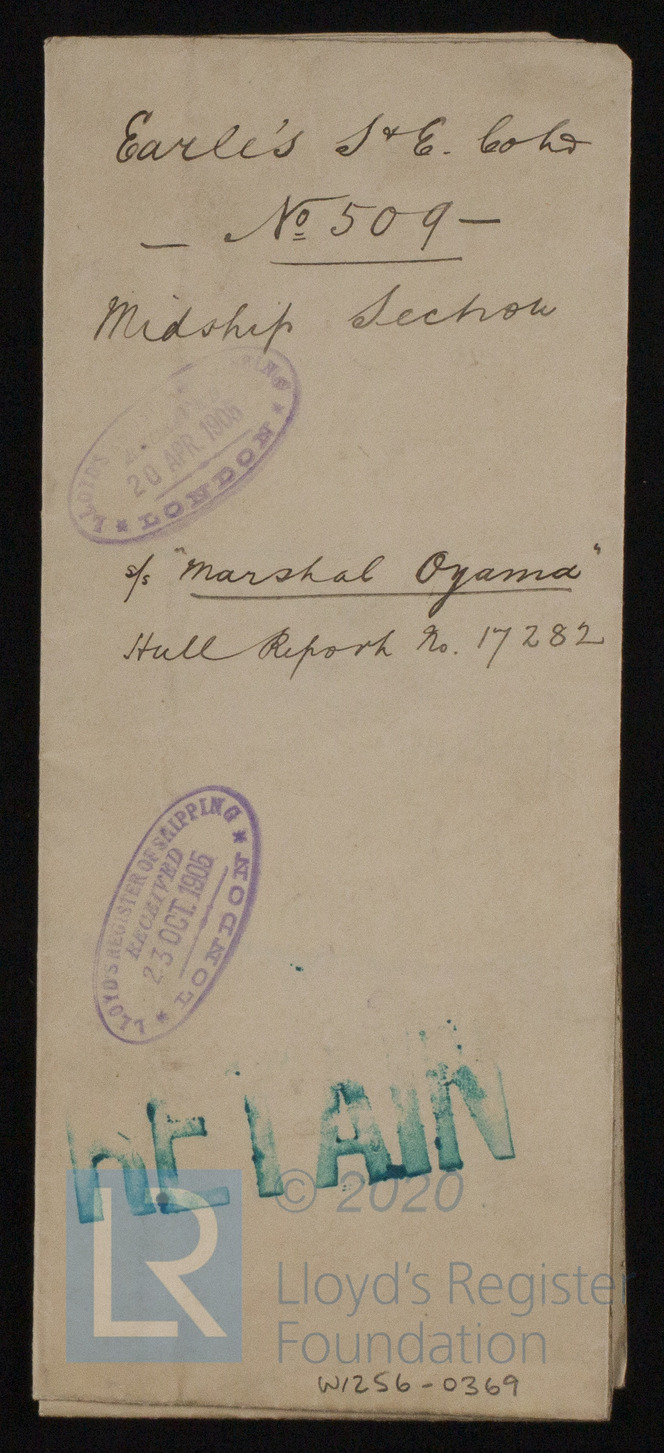 Earle's S & E. Co Ld
— No 509 —
Midship Section
LLOYD'S REGISTER OF SHIPPING
RECEIVED
20 APR. 1905
LONDON
s/s "Marshal Oyama"
Hull Report No. 17282
LLOYD'S REGISTER OF SHIPPING
RECEIVED
23 OCT. 1905
LONDON
RETAIN
© 2020
LR
Lloyd's Register
Foundation
W1256-0369